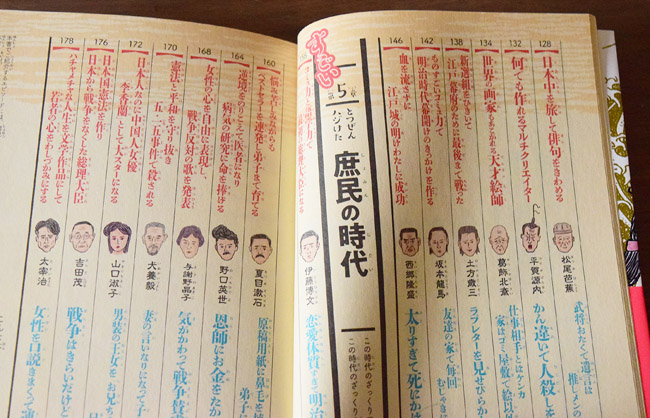 128
日本中を旅して俳句をきわめる
松尾芭蕉
武将おたくで遺言は
132
何でも作れるマルチクリエイター
平賀源内
かん違いで人殺しを
134
世界の画家もあこがれる天才絵師
葛飾北斎
仕事相手とはケンカ
家はゴミ屋敷で絵
138
新選組をひきいて
江戸幕府のために最後まで戦った
土方歳三
ラブレターを見せびらか
142
ものすごいコミュ力で
明治時代の幕開けのきっかけを作る
坂本龍馬
友達の家で毎回
146
血を流さずに
江戸城の明けわたしに成功
西郷隆盛
太りすぎて死にか
すごい
第5章
とつぜん
ハジけた
庶民の時代
この時代のざっくり
この時代のざっく
伊藤博文
恋愛体質すぎて明治
160
悩み苦しみながらも
ベストセラーを連発、弟子まで育てる
夏目漱石
原稿用紙に鼻毛を
弟子
164
逆境をのりこえて医者になり
病気の研究に命を捧げる
野口英世
恩師にお金をたか
168
女性の心を自由に表現し、
戦争反対の歌を発表
与謝野晶子
気がかわって戦争賛
170
憲法と平和を守り抜き
五・一五事件で殺される
犬養毅
妻の言いなりになって
172
日本人なのに中国人女優
李香蘭として大スターになる
山口淑子
男装の王女をお兄ち
176
日本国憲法を作り
日本から戦争をなくした総理大臣
吉田茂
戦争はきらいだけど
178
ハチャメチャな人生を文学作品にして
若者の心をわしづかみにする
太宰治
女性を口説きまくって